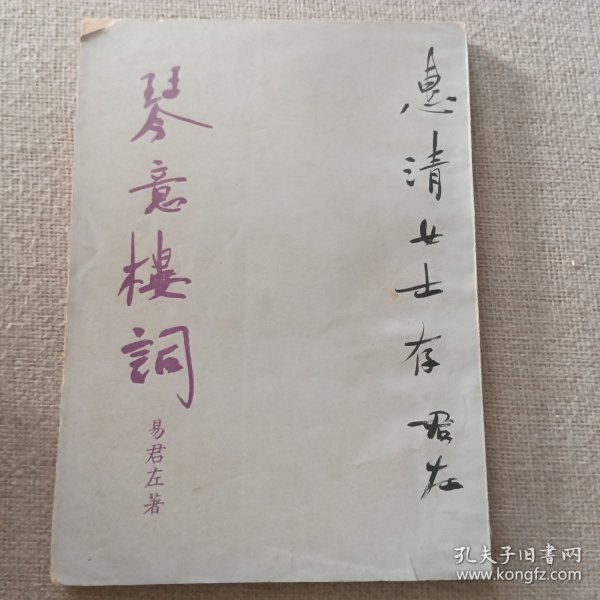 惠清女士存 君左
琴意樓詞
易君左著
孔夫子旧书网
www.kongfz.com